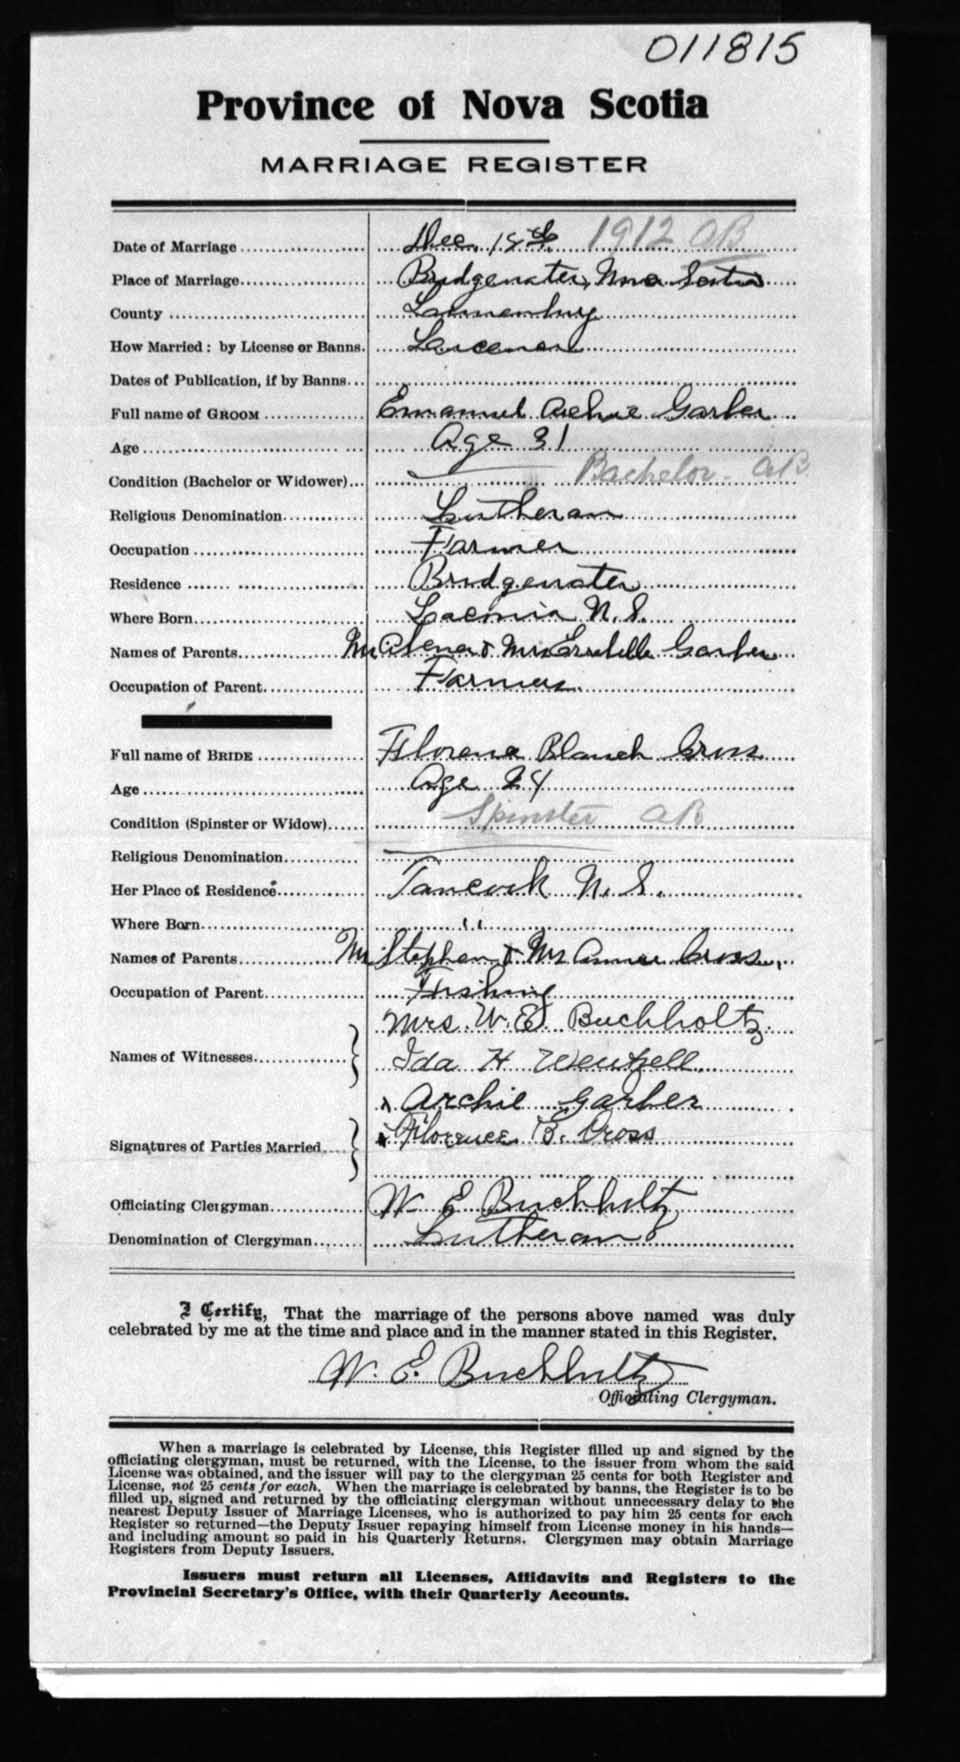 011815
Province of Nova Scotia
MARRIAGE REGISTER
Date of Marriage Dec. 18th 1912 AB
Place of Marriage Bridgewater, Nova Scotia
County Lunenburg
How Married: by License or Banns.
Dates of Publication, if by Banns
Full name of GROOM Emanuel Garber
Age Age 31
Condition (Bachelor or Widower) Bachelor - AB
Religious Denomination Lutheran
Occupation Farmer
Residence Bridgewater
Where Born N. S.
Names of Parents Mr & Mrs Garber
Occupation of Parent Farmers.
Full name of BRIDE Blanch Cross
Age Age 24
Condition (Spinster or Widow) Spinster AB
Religious Denomination
Her Place of Residence Tancook N. S.
Where Born "
Names of Parents Mr Stephen & Mrs Cross.
Occupation of Parent Fishing
Names of Witnesses Mrs. W. E. Buchholtz.
Ida H Wentzell
x Archie Garber
Signatures of Parties Married x Florence B. Cross
Officiating Clergyman W. E. Buchholtz
Denomination of Clergyman Lutheran
I Certify, That the marriage of the persons above named was duly
celebrated by me at the time and place and in the manner stated in this Register.
W. E. Buchholtz
Officiating Clergyman.
When a marriage is celebrated by License, this Register filled up and signed by the
officiating clergyman, must be returned, with the License, to the issuer from whom the said
License was obtained, and the issuer will pay to the clergyman 25 cents for both Register and
License, not 25 cents for each. When the marriage is celebrated by banns, the Register is to be
filled up, signed and returned by the officiating clergyman without unnecessary delay to the
nearest Deputy Issuer of Marriage Licenses, who is authorized to pay him 25 cents for each
Register so returned—the Deputy Issuer repaying himself from License money in his hands—
and including amount so paid in his Quarterly Returns. Clergymen may obtain Marriage
Registers from Deputy Issuers.
Issuers must return all Licenses, Affidavits and Registers to the
Provincial Secretary's Office, with their Quarterly Accounts.